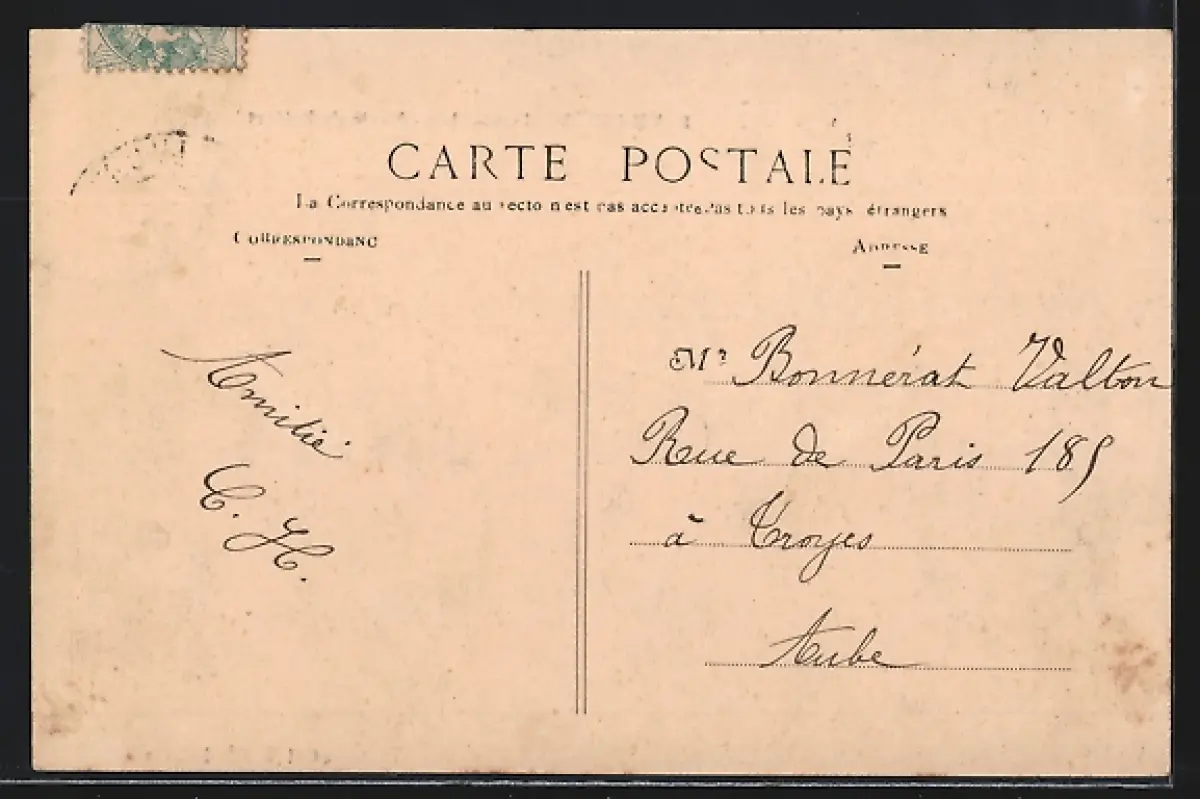 CARTE POSTALE
La Correspondance au recto n'est pas acceptée pas tous les pays étrangers
CORRESPONDANC
ADRESSE
Amitié
C. H.
Mr Bonnérat Valton
Rue de Paris 185
à Troyes
Aube